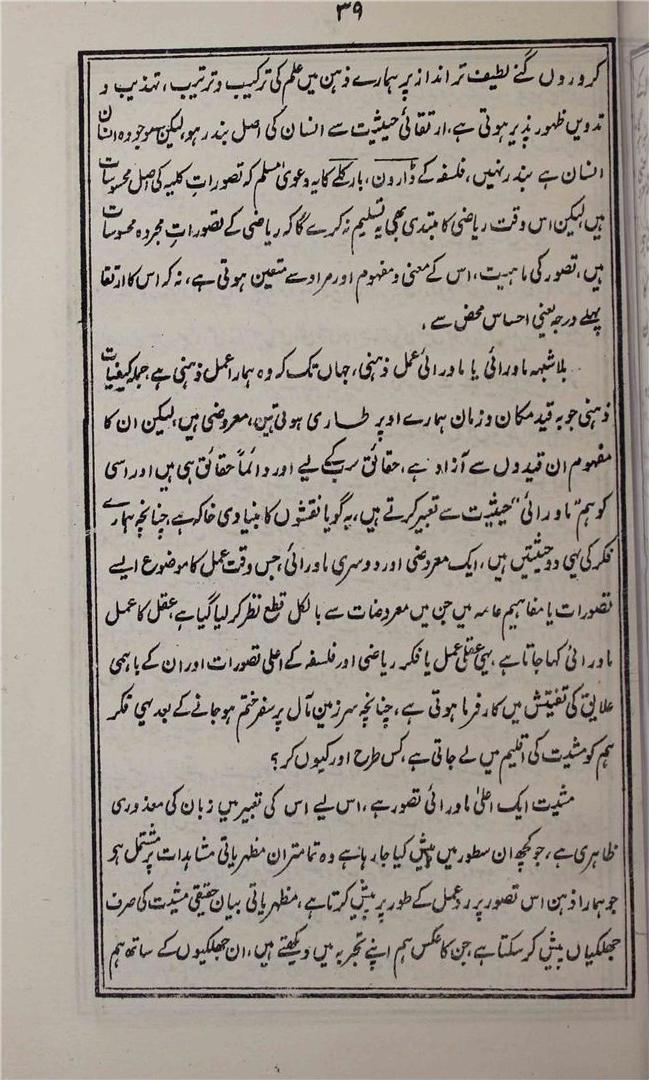 ۳۹
کروروں گنے لطیف تر انداز پر ہمارے ذہن میں علم کی ترکیب و ترتیب، تہذیب و
تدوین ظہور پذیر ہوتی ہے، ارتقائی حیثیت سے انسان کی اصل بندر ہو، لیکن موجودہ انسان
انسان ہے بندر نہیں، فلسفہ کے ڈارون، بارکلے کا یہ دعویٰ مسلم کہ تصورات کلیہ کی اصل محسوسات
ہیں، لیکن اس وقت ریاضی کا مبتدی بھی یہ تسلیم نہ کرے گا کہ ریاضی کے تصوراتِ مجردہ محسوسات
ہیں، تصور کی ماہیت، اس کے معنی و مفہوم اور مراد سے متعین ہوتی ہے، نہ کہ اس کا ارتقا
پہلے درجہ یعنی احساس محض سے۔
بلاشبہہ ماورائی یا ماورائی عمل ذہنی، جہاں تک کہ وہ ہمارا عمل ذہنی ہے جملہ کیفیات
ذہنی جو بہ قید مکان و زمان ہمارے اوپر طاری ہوتی ہیں، معروضی ہیں، لیکن ان کا
مفہوم ان قیدوں سے آزاد ہے، حقائق سب کے لیے اور دائماً حقائق ہی ہیں اور اسی
کو ہم "ماورائی" حیثیت سے تعبیر کرتے ہیں، یہ گویا نقشوں کا بنیادی خاکہ ہے چنانچہ ہمارے
فکر کی یہی دو حیثیتیں ہیں، ایک معروضی اور دوسری ماورائی، جس وقت عمل کا موضوع ایسے
تصورات یا مفاہیم عامہ میں جن میں معروضات سے بالکل قطع نظر کر لیا گیا ہے، عقل کا عمل
ماورائی کہا جاتا ہے، یہی عقلی عمل یا فکر ریاضی اور فلسفہ کے اعلی تصورات اور ان کے باہمی
علایق کی تفتیش میں کارفرما ہوتی ہے، چنانچہ سرزمین مآل پر سفر ختم ہو جانے کے بعد یہی فکر
ہم کو مشیت کی اقلیم میں لے جاتی ہے، کس طرح اور کیوں کر؟
مشیت ایک اعلیٰ ماورائی تصور ہے، اس لیے اس کی تعبیر میں زبان کی معذوری
ظاہری ہے، جو کچھ ان سطور میں پیش کیا جا رہا ہے وہ تمامتر ان مظہریاتی مشاہدات پر مشتمل ہو
جو ہمارا ذہن اس تصور پر ردعمل کے طور پر پیش کرتا ہے، مظہریاتی بیان حقیقی مشیت کی صرف
جھلکیاں پیش کر سکتا ہے، جن کا عکس ہم اپنے تجربہ میں دیکھتے ہیں، ان جھلکیوں کے ساتھ ہم